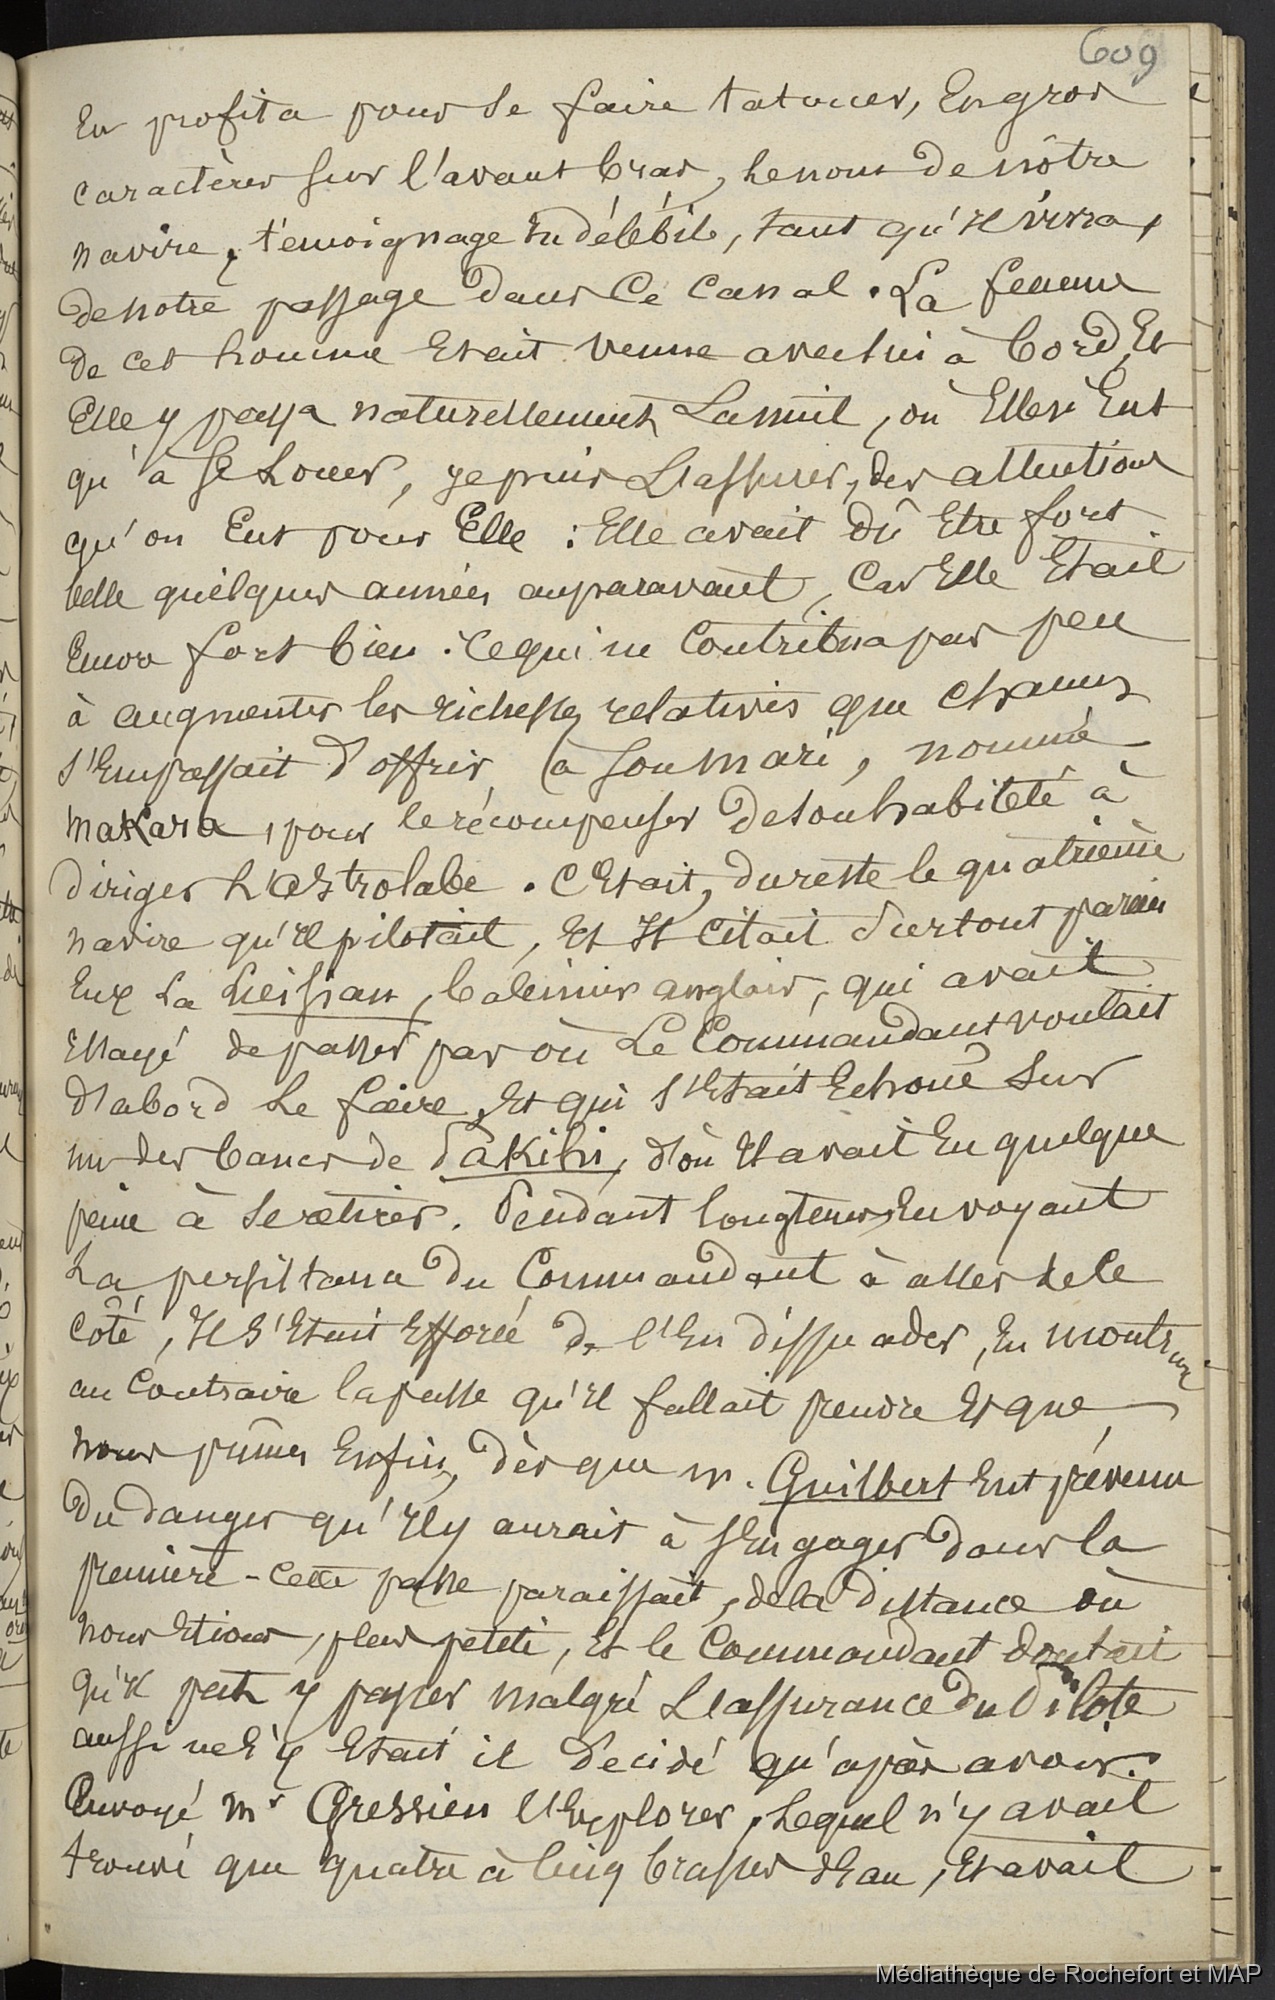 609
En profita pour se faire tatouer, En gros
caractères sur l'avant bras, le nom de nôtre
navire, témoignage Indélébile, tant qu'il vivra,
de notre passage dans Ce Canal. La femme
De cet homme Etait venue avec lui à bord, Et
Elle y passa naturellement La nuit, où Elle n'Eut
qu'à se Louer, je puis L'assurer, des attentions
qu'on Eut pour Elle : Elle avait Dû Etre fort
belle quelques années auparavant, Car Elle Etait
Encore fort bien. Ce qui ne Contribua pas peu
à augmenter les richesses relatives que chacun
s'Empressait D'offrir à son mari, nommé
Makara, pour le récompenser De son habileté à
Diriger L'Astrolabe. C'Etait, du reste le quatrième
navire qu'il pilotait, Et Il Citait Surtout parmi
Eux La baleinier anglais, qui avait
Essayé de passer par où Le Commandant voulait
D'abord Le faire, Et qui s'Etait Echoué Sur
un des bancs de Dakihi, d'où Il avait Eu quelque
peine à se retirer. Pendant longtems, En voyant
La persistance Du Commandant à aller de Ce
Coté, Il s'Etait Efforcé De l'En dissuader, En montrant
au Contraire la passe qu'il fallait prendre Et que
nous prîmes Enfin, Dès que m. Guilbert Eut prévenu
Du danger qu'Il y aurait à s'Engager dans la
première - Cette passe paraissait, de la Distance où
nous Etions, plus petite, Et le Commandant doutait
qu'il put y passer malgré L'assurance du Pilote
aussi ne s'y Etait il décidé qu'après avoir
Envoyé Mr Gressien l'Explorer, Lequel n'y avait
trouvé que quatre à Cinq brasses d'Eau, Et avait
Médiathèque de Rochefort et MAP